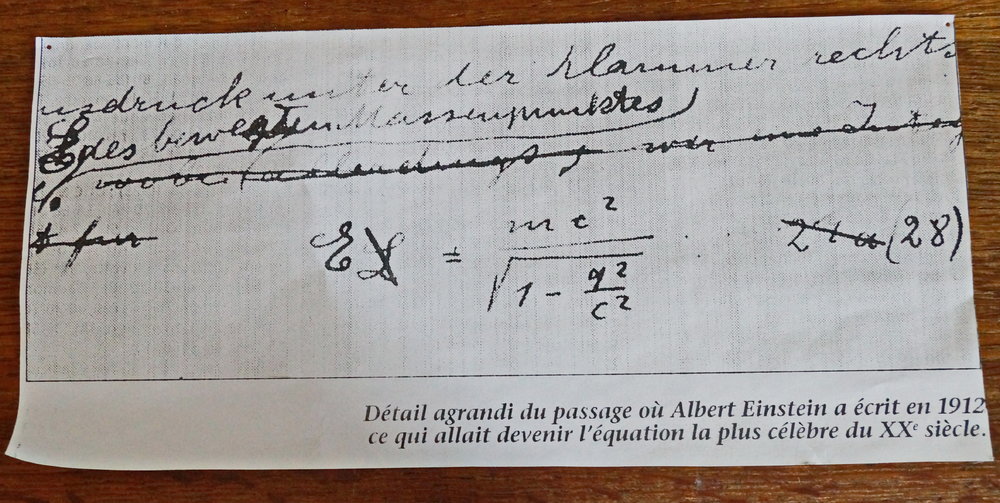 usdruck unter der Klammer rechts
E des bewegten Massenpunktes)
E = mc² / √(1 - q²/c²) (28)
Détail agrandi du passage où Albert Einstein a écrit en 1912
ce qui allait devenir l'équation la plus célèbre du XXᵉ siècle.